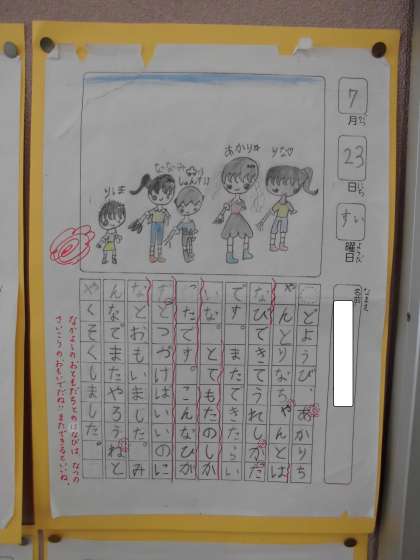 7
月
がつ
23
日
にち
すい
曜日
ようび
名前
なまえ
りな♡
あかり☆
ななみ☆
どようび、あかりち
ゃんとりなちゃんとは
なびできてうれしかった
です。またできたらい
いな。とてもたのしか
ったです。こんなひが
ずっとつづけばいいのに
なとおもいました。み
んなでまたやろうねと
やくそくしました。
なかよしのおともだちとのはなびは、なつの
さいこうのおもいでだね!!またできるといいね。